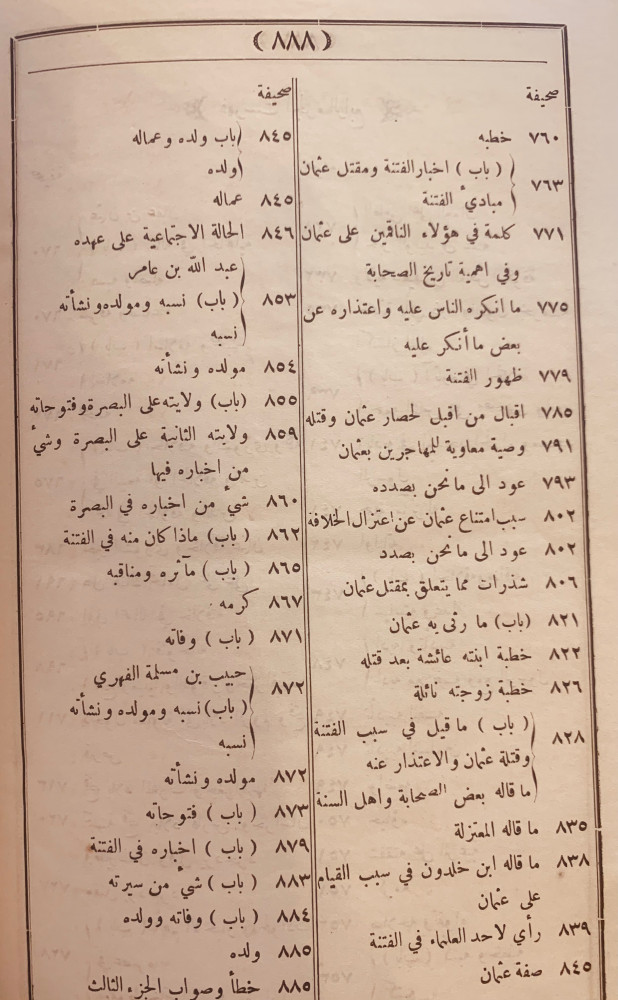 (٨٨٨)
صحيفة
٧٦٠ خطبه
٧٦٣ (باب) اخبار الفتنة ومقتل عثمان
مبادئ الفتنة
٧٧١ كلمة في هؤلاء الناقمين على عثمان
وفي اهمية تاريخ الصحابة
٧٧٥ ما انكره الناس عليه واعتذاره عن
بعض ما أنكر عليه
٧٧٩ ظهور الفتنة
٧٨٥ اقبال من اقبل لحصار عثمان وقتله
٧٩١ وصية معاوية للمهاجرين بعثمان
٧٩٣ عود الى ما نحن بصدده
٨٠٢ سبب امتناع عثمان عن اعتزال الخلافة
٨٠٢ عود الى ما نحن بصدد
٨٠٦ شذرات مما يتعلق بمقتل عثمان
٨٢١ (باب) ما رثى به عثمان
٨٢٢ خطبة ابنته عائشة بعد قتله
٨٢٦ خطبة زوجته نائلة
٨٢٨ (باب) ما قيل في سبب الفتنة
وقتلة عثمان والاعتذار عنه
ما قاله بعض الصحابة واهل السنة
٨٣٥ ما قاله المعتزلة
٨٣٨ ما قاله ابن خلدون في سبب القيام
على عثمان
٨٣٩ رأي لاحد العلماء في الفتنة
٨٤٥ صفة عثمان
صحيفة
٨٤٥ باب ولده وعماله
ولده
٨٤٥ عماله
٨٤٦ الحالة الاجتماعية على عهده
عبد الله بن عامر
٨٥٣ (باب) نسبه ومولده ونشأته
نسبه
٨٥٤ مولده ونشأته
٨٥٥ (باب) ولايته على البصرة وفتوحاته
٨٥٩ ولايته الثانية على البصرة وشئ
من اخباره فيها
٨٦٠ شئ من اخباره في البصرة
٨٦٢ (باب) ماذا كان منه في الفتنة
٨٦٥ (باب) مآثره ومناقبه
٨٦٧ كرمه
٨٧١ (باب) وفاته
حبيب بن مسلمة الفهري
٨٧٢ (باب) نسبه ومولده ونشأته
نسبه
٨٧٢ مولده ونشأته
٨٧٣ (باب) فتوحاته
٨٧٩ (باب) اخباره في الفتنة
٨٨٣ (باب) شئ من سيرته
٨٨٤ (باب) وفاته وولده
٨٨٥ ولده
٨٨٥ خطأ وصواب الجزء الثالث